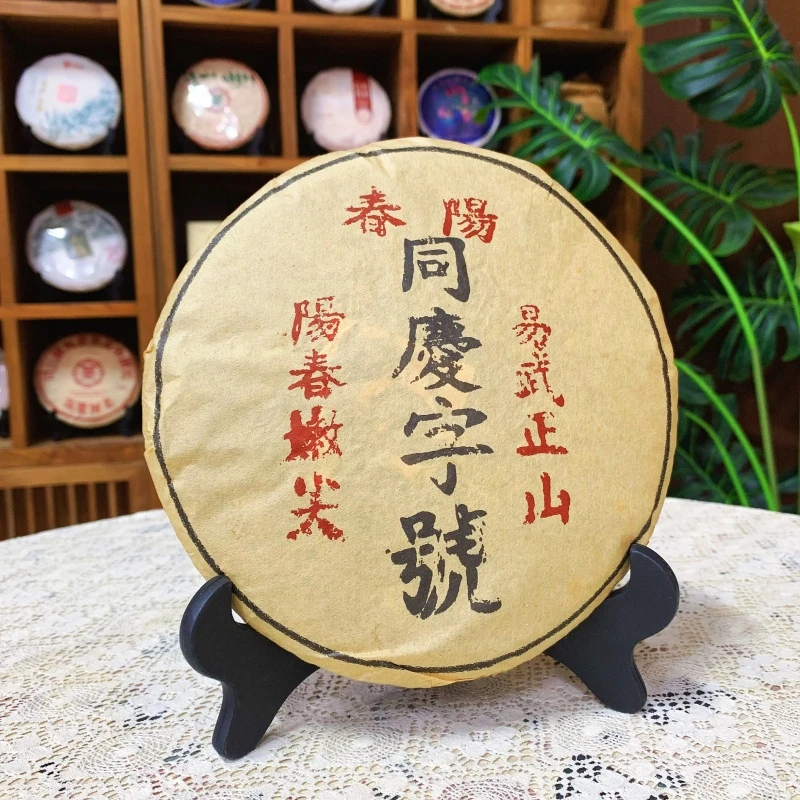 陽春
易武正山
同慶字號
陽春嫩尖